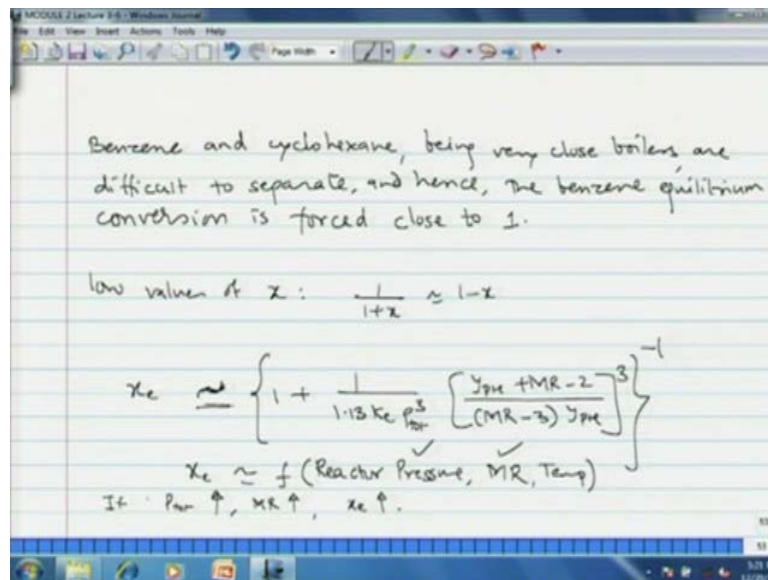 MODULE 2 Lecture 3-6 - Windows Journal
File Edit View Insert Actions Tools Help
Page Width
Benzene and cyclohexane, being very close boilers, are
difficult to separate, and hence, the benzene equilibrium
conversion is forced close to 1.
low values of x : 1/(1+x) ≃ 1-x
x_e ≃ {1 + 1/(1.13 Ke P_tot^3) [(y_pre + MR - 2)/((MR - 3) y_pre)]^3}^-1
x_e ≃ f (Reactor Pressure, MR, Temp)
If P_tot ↑, MR ↑, x_e ↑.
53
53